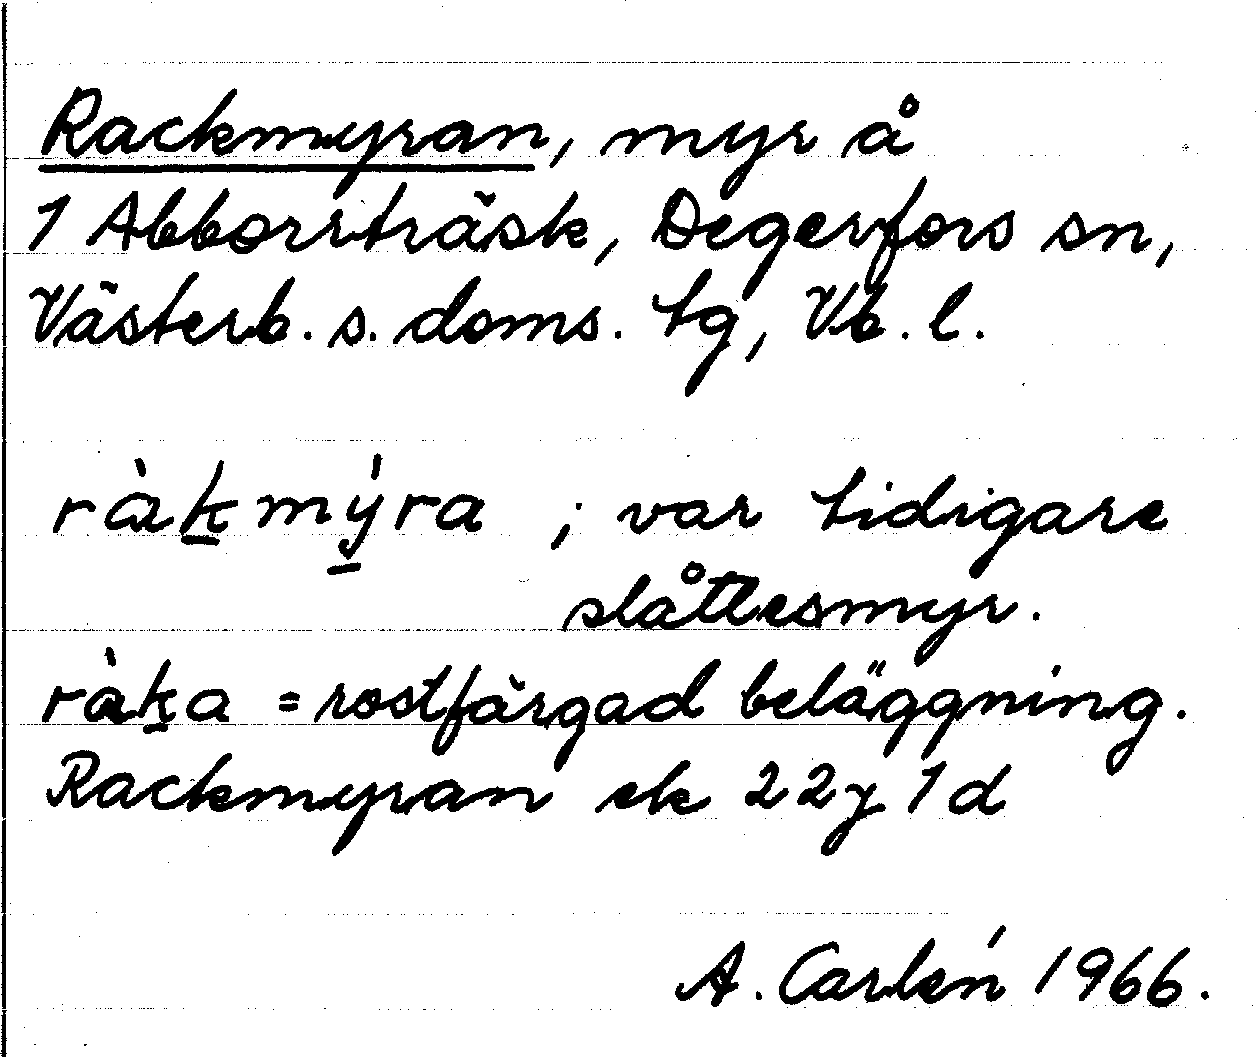 Rackmyran, myr å
1 Abborrträsk, Degerfors sn,
Västerb. s. doms. tg, Vb. l.
ràk̲mý̲ra ; var tidigare
slåttesmyr.
ràk̲a = rostfärgad beläggning.
Rackmyran ek 22j 1d
A. Carlén 1966.